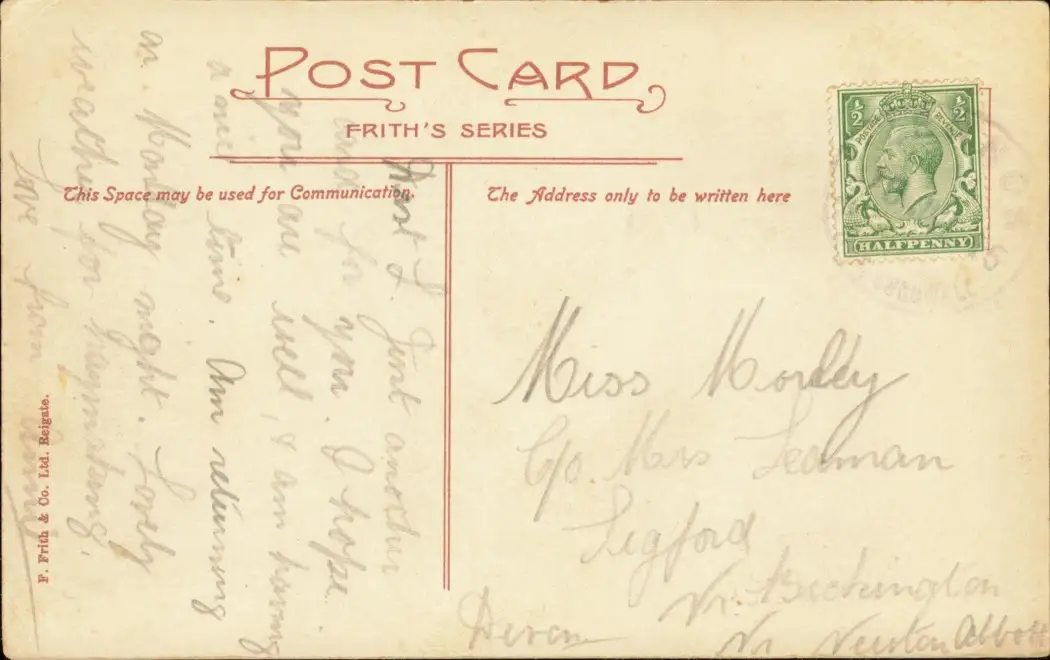 POST CARD
FRITH'S SERIES
This Space may be used for Communication.
The Address only to be written here
½ ½
POSTAGE REVENUE
HALFPENNY
Just another
card for you. I hope
you are well, & am having
a nice time. Am returning
on Monday night. Lovely
weather for haymaking.
Love from
Miss Morley
C/o. Mrs Leaman
Sigford
Nr. Bickington
Nr Newton Abbott
Devon
F. Frith & Co. Ltd. Reigate.